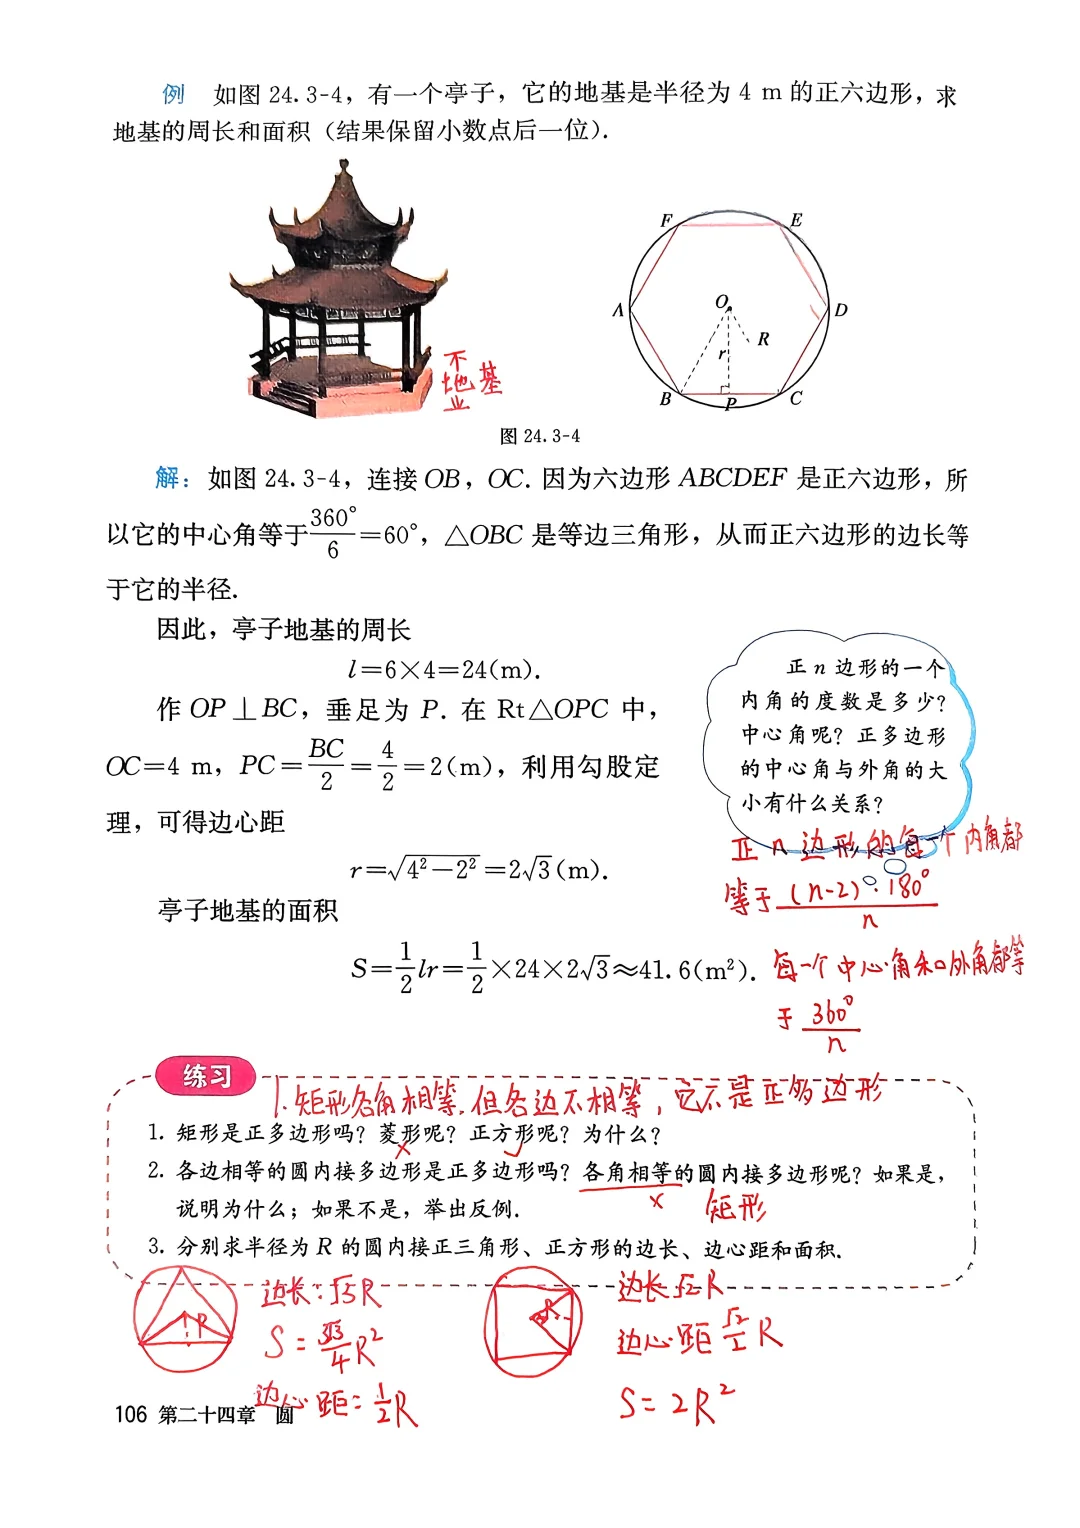 例 如图 24.3-4，有一个亭子，它的地基是半径为 4 m 的正六边形，求
地基的周长和面积（结果保留小数点后一位）.
F E
A O D
R
r
B P C
地基
图 24.3-4
解：如图 24.3-4，连接 OB，OC. 因为六边形 ABCDEF 是正六边形，所
以它的中心角等于 360°/6 =60°，△OBC 是等边三角形，从而正六边形的边长等
于它的半径.
因此，亭子地基的周长
l=6×4=24(m).
作 OP⊥BC，垂足为 P. 在 Rt△OPC 中，
OC=4 m，PC= BC/2 = 4/2 =2(m)，利用勾股定
理，可得边心距
r=√(4²-2²)=2√3(m).
亭子地基的面积
S=1/2 lr=1/2×24×2√3≈41.6(m²).
正 n 边形的一个
内角的度数是多少？
中心角呢？正多边形
的中心角与外角的大
小有什么关系？
正n边形的每一个内角都
等于 (n-2)·180°/n
每一个中心角和外角都等
于 360°/n
练习
1.矩形各角相等,但各边不相等，它不是正多边形
1. 矩形是正多边形吗？菱形呢？正方形呢？为什么？
2. 各边相等的圆内接多边形是正多边形吗？各角相等的圆内接多边形呢？如果是，
× 矩形
说明为什么；如果不是，举出反例.
3. 分别求半径为 R 的圆内接正三角形、正方形的边长、边心距和面积.
R
边长：√3R
S= 3√3/4 R²
边心距：1/2R
R
边长√2R
边心距 √2/2 R
S=2R²
106 第二十四章 圆